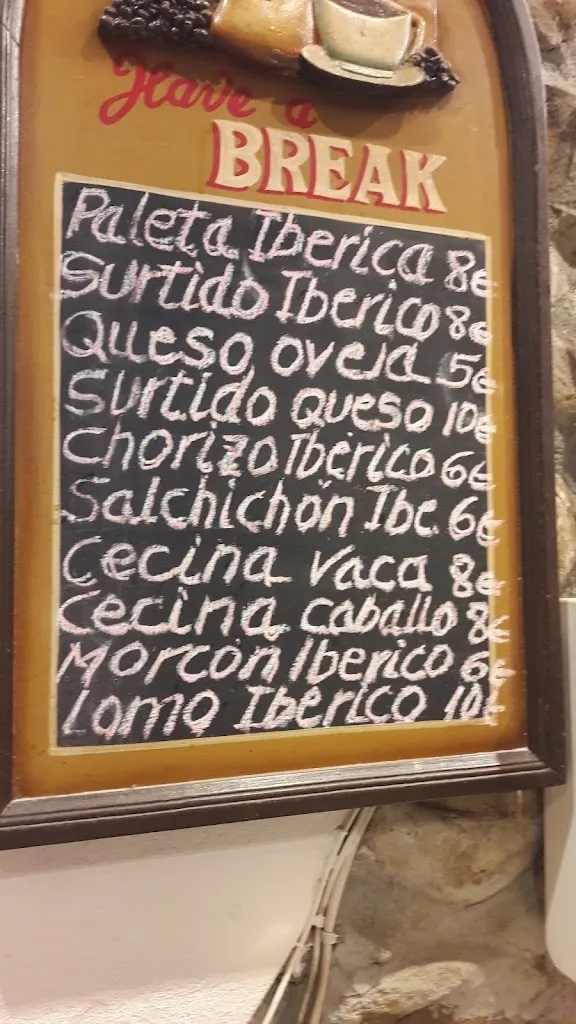 Have a
BREAK
Paleta Iberica 8€
Surtido Iberico 8€
Queso oveja 5€
Surtido queso 10€
Chorizo Iberico 6€
Salchichón Ibe. 6€
Cecina vaca 8€
Cecina caballo 8€
Morcón Iberico 6€
Lomo Iberico 10€